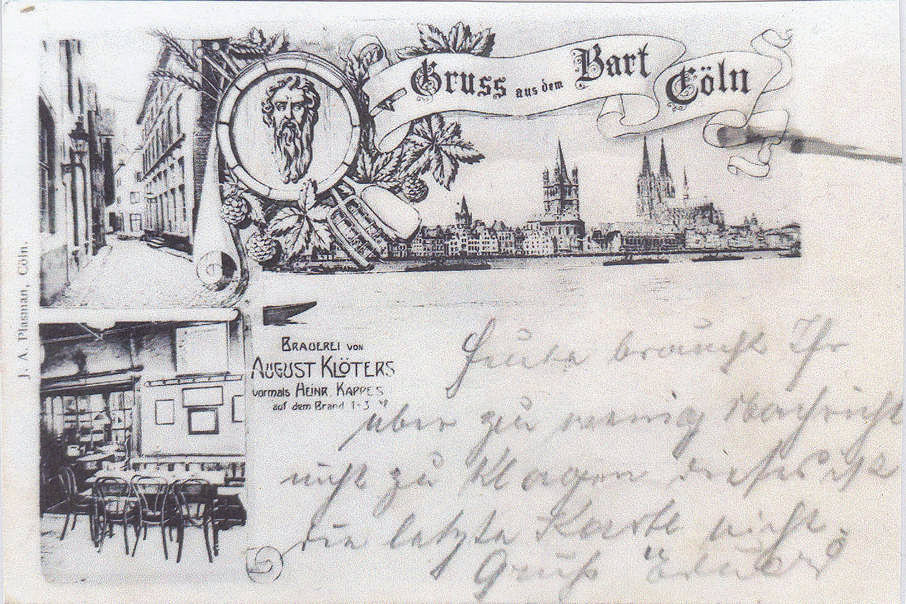 Gruss aus dem Bart Cöln
J. A. Plasman, Cöln.
BRAUEREI VON
AUGUST KLÖTERS
vormals HEINR. KAPPES
auf dem Brand 1-3
Heute braucht Ihr
über zu wenig Nachricht
nicht zu Klagen dieses ist
die letzte Karte nicht.
Gruß Eduard